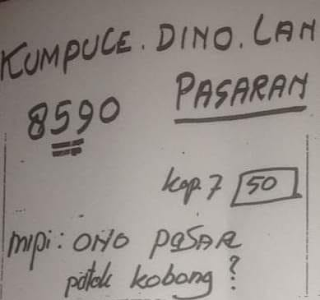 KUMPULE. DINO. LAN
PASARAN
8590
kop. 7 50
mipi: ONO PASAR
patok kobong?